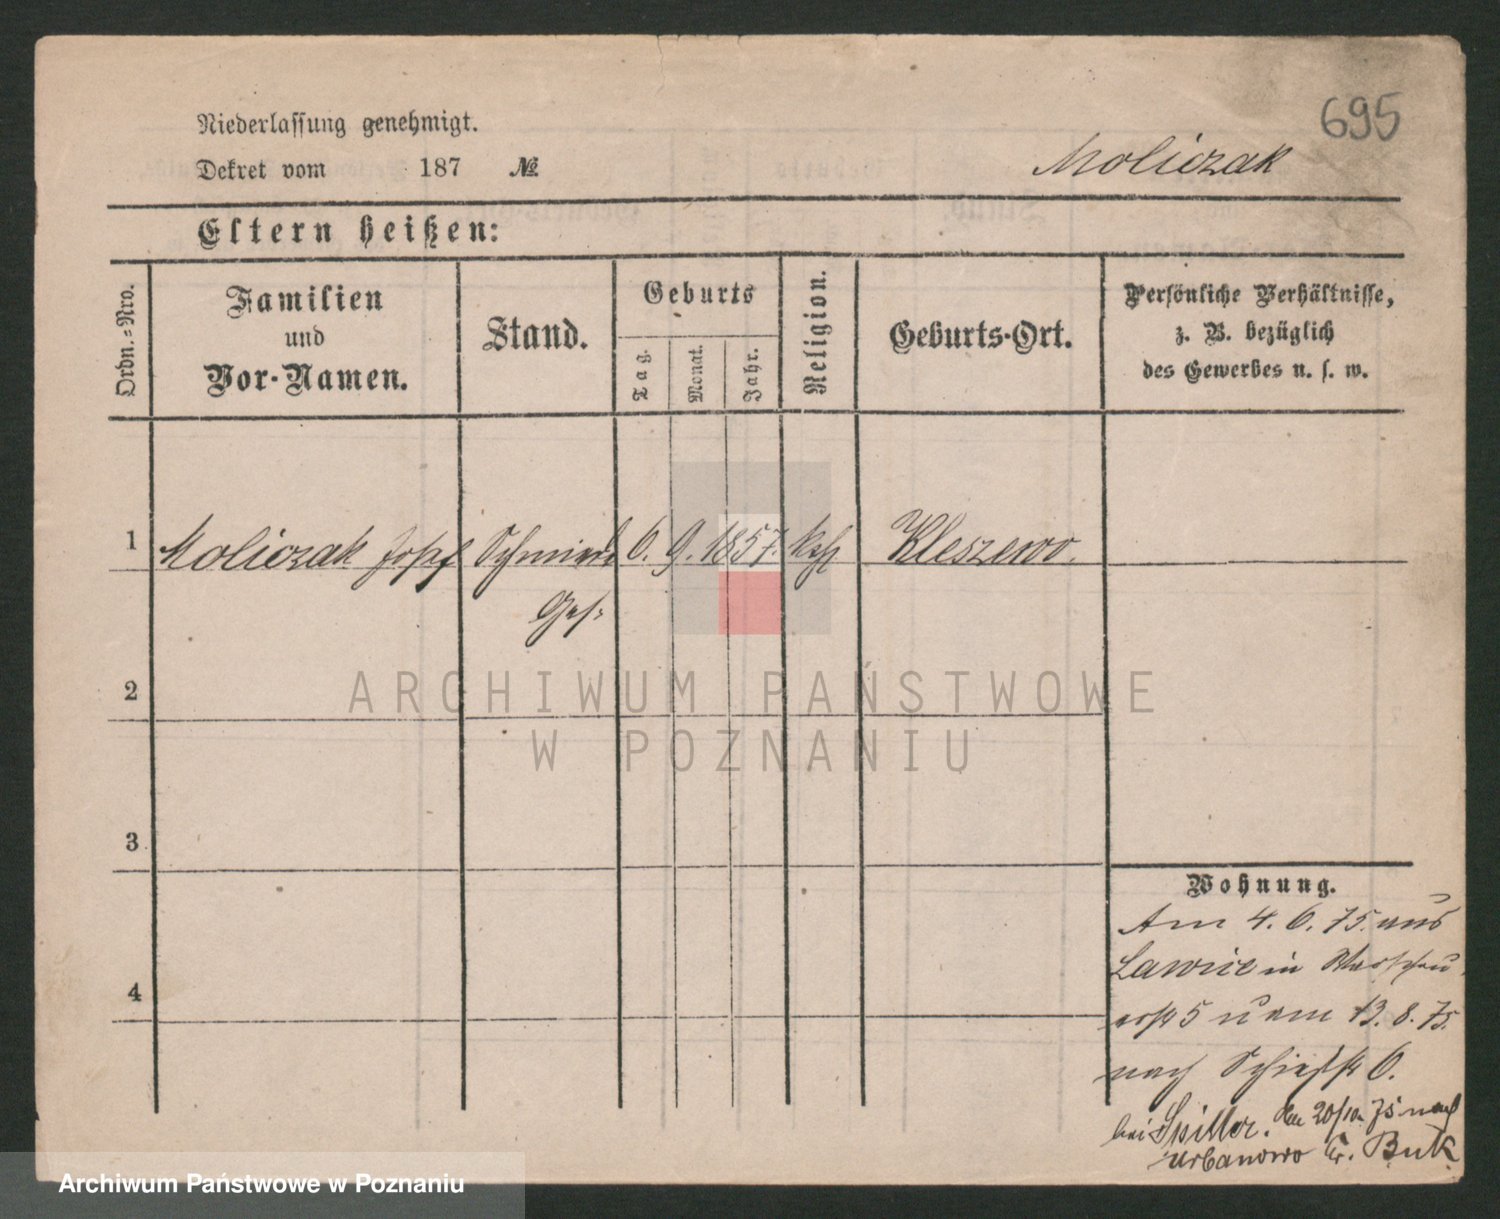 695
Niederlassung genehmigt.
Dekret vom 187 №
Moliczak
Eltern heißen:
Ordn.=Nro.
Familien
und
Vor-Namen.
Stand.
Geburts
Tag.
Monat.
Jahr.
Religion.
Geburts-Ort.
Persönliche Verhältnisse,
z. B. bezüglich
des Gewerbes u. s. w.
1 Moliczak Josef Schmiede 6. 9. 1857. kath Kleszewo.
Ges.
2
3
4
Wohnung.
Am 4. 6. 75. aus
Lawice in
5 u am 13. 8. 75.
nach Schießstr 6.
bei Spiller. Am 20/10. 75 nach
Urbanowo Kr. Buk
ARCHIWUM PAŃSTWOWE
W POZNANIU
Archiwum Państwowe w Poznaniu